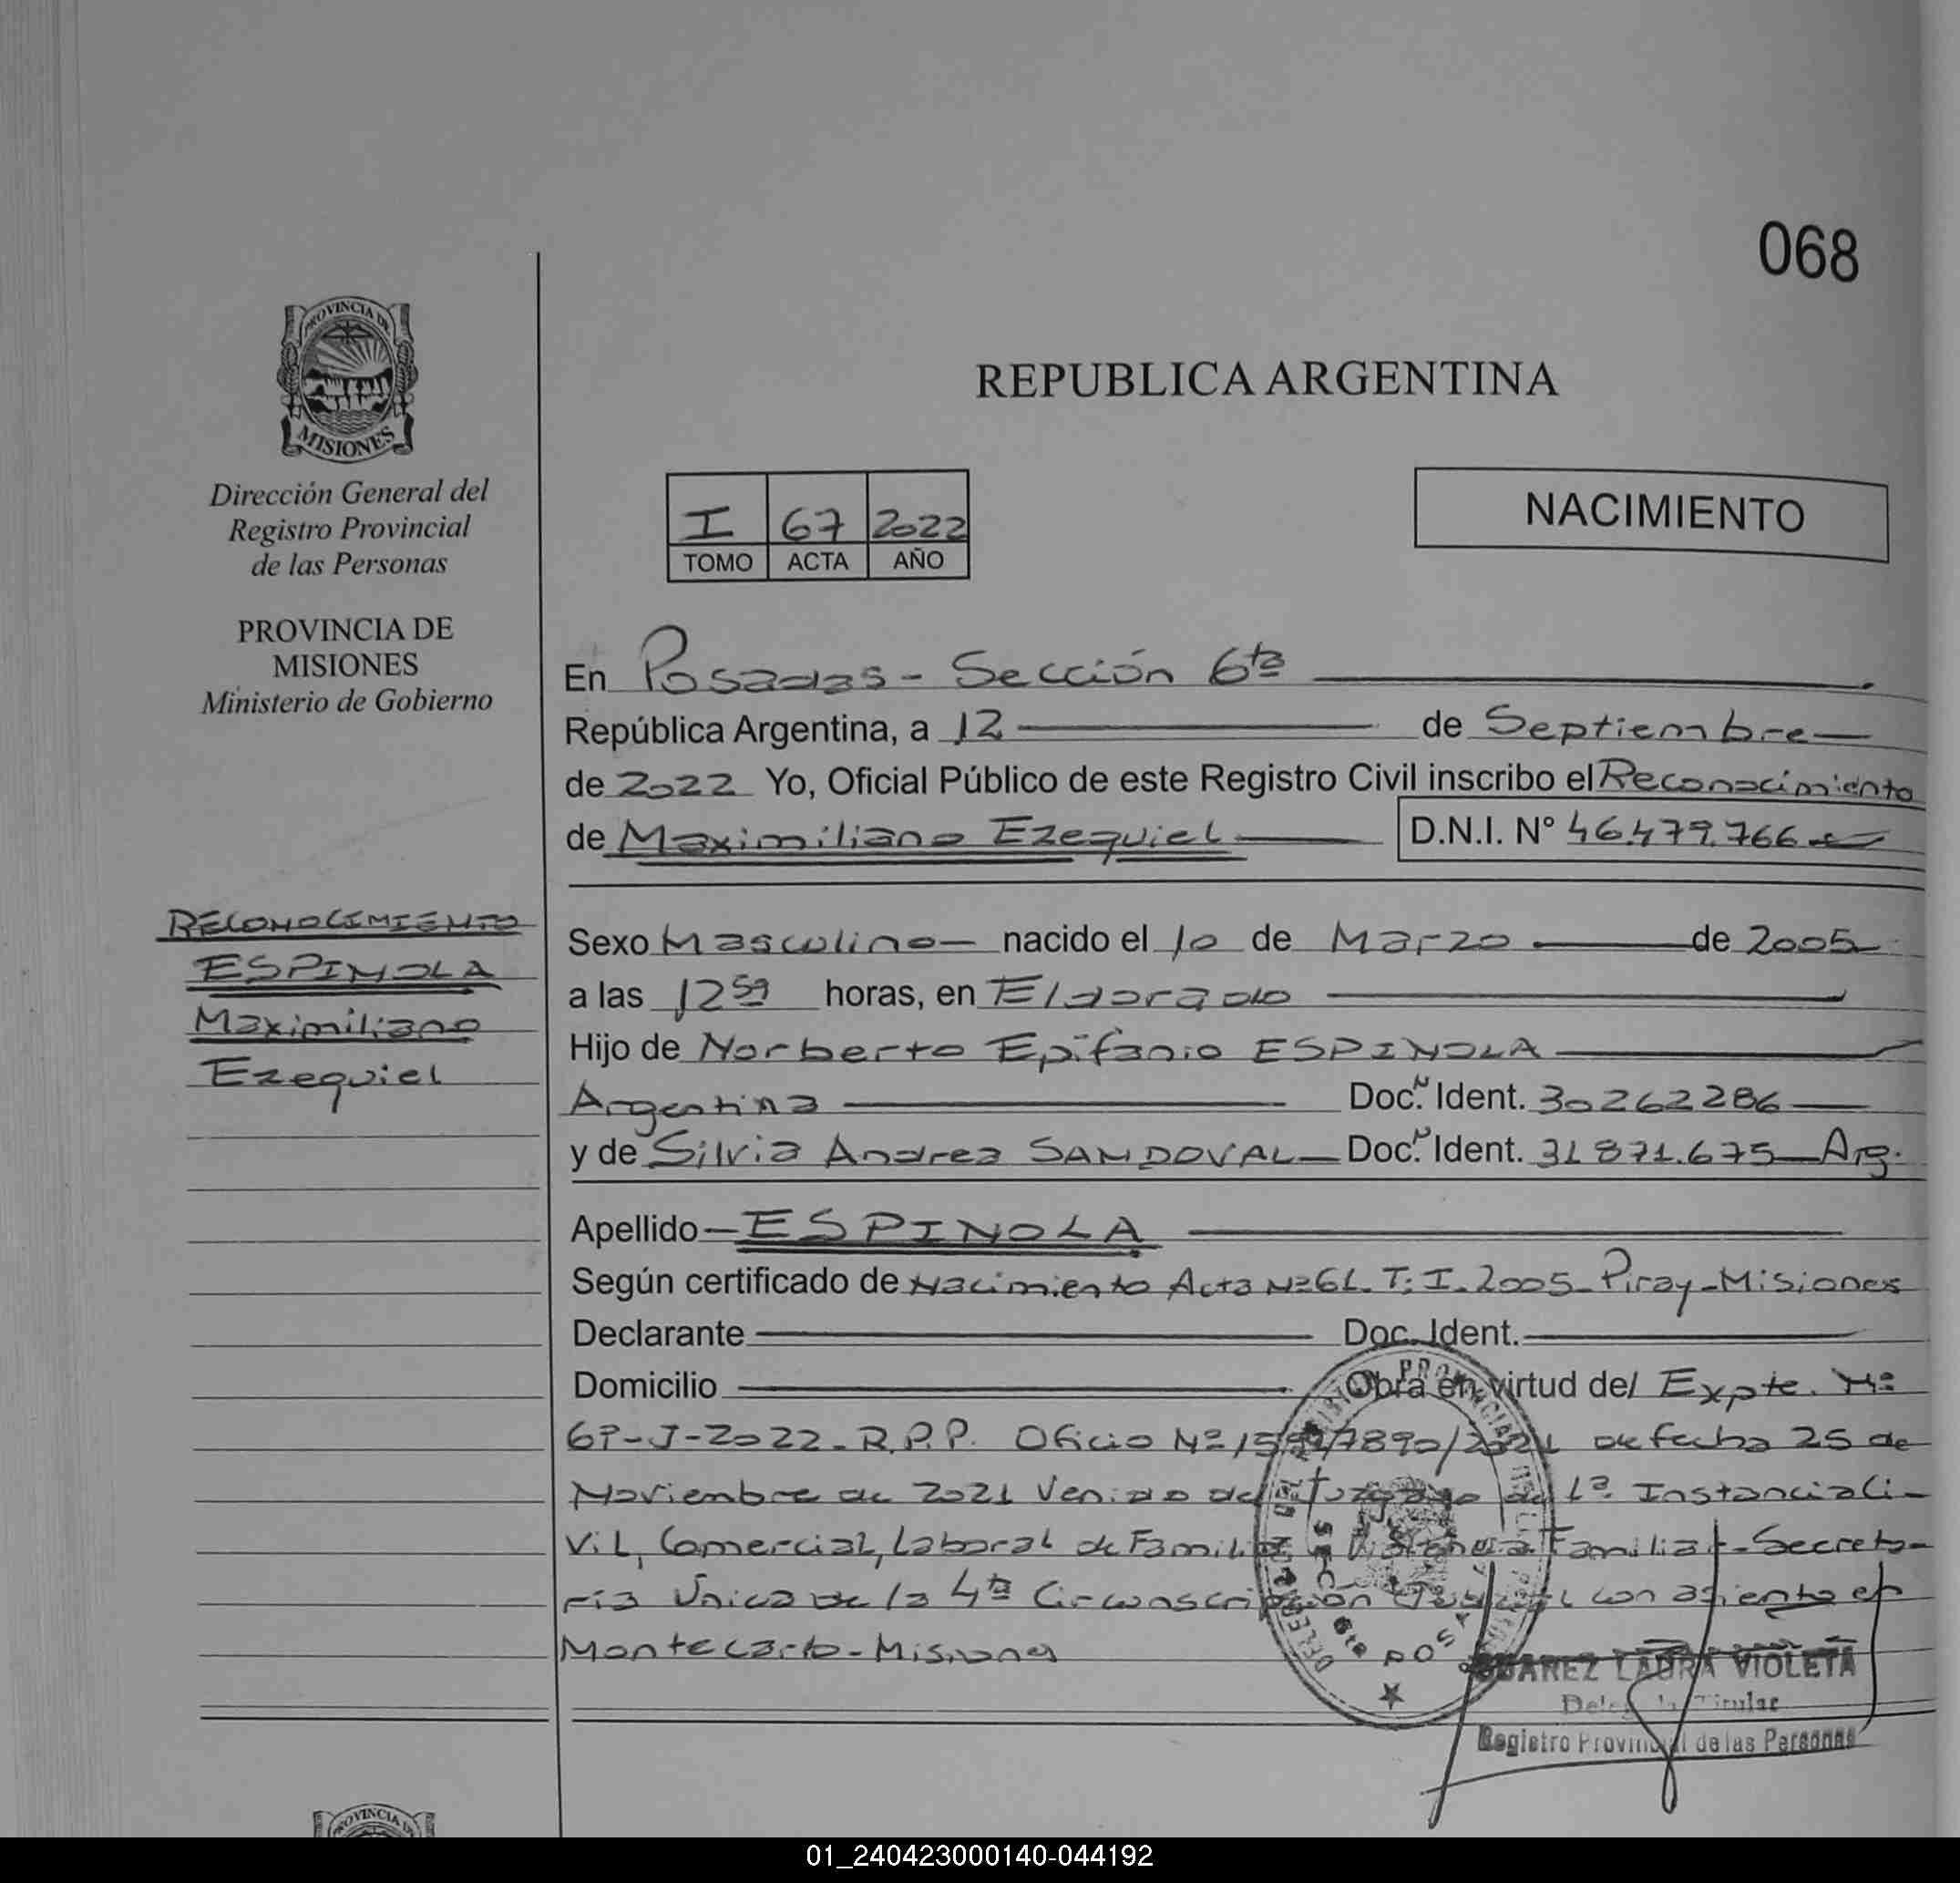 068
PROVINCIA DE
MISIONES
Dirección General del
Registro Provincial
de las Personas
PROVINCIA DE
MISIONES
Ministerio de Gobierno
REPUBLICA ARGENTINA
I 67 2022
TOMO ACTA AÑO
NACIMIENTO
En Posadas - Sección 6ta
República Argentina, a 12 de Septiembre
de 2022 Yo, Oficial Público de este Registro Civil inscribo el Reconocimiento
de Maximiliano Ezequiel D.N.I. N° 46.479.766
RECONOCIMIENTO
ESPINOLA
Maximiliano
Ezequiel
Sexo Masculino nacido el 10 de Marzo de 2005
a las 12 59 horas, en Eldorado
Hijo de Norberto Epifanio ESPINOLA
Argentina Doc. N Ident. 30262286
y de Silvia Andrea SANDOVAL Doc. N Ident. 31871.675 Arg.
Apellido ESPINOLA
Según certificado de Nacimiento Acta Nº 61. T: I. 2005 Piray - Misiones
Declarante Doc. Ident.
Domicilio Obra en virtud del Expte. Nº
-J-2022. R.P.P. Oficio Nº de fecha 25 de
Noviembre de 2021 Venido del Juzgado de 1ª Instancia Ci-
vil, Comercial, Laboral de Familia y Violencia Familiar - Secreta-
ría Única de la 4ta Circunscripción Judicial con asiento en
Montecarlo - Misiones
SUAREZ LAURA VIOLETA
Delegada Titular
Registro Provincial de las Personas
PROVINCIA DE
01_240423000140-044192